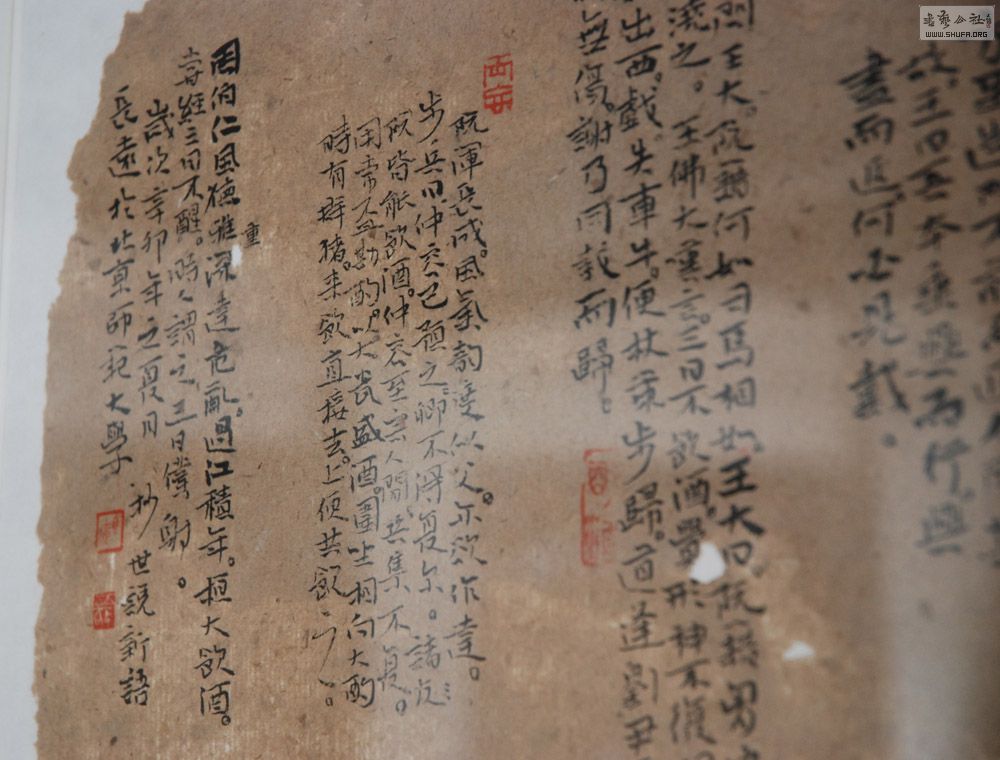 故。王曰吾本乘興而行。興
盡而返。何必見戴。
王大。阮籍何如司馬相如。王大曰。阮籍胸
澆之。王佛大嘆言。三日不飲酒。覺形神不復
出西戲。失車牛。便杖策步歸。道逢劉尹
無寫。謝乃同載而歸。
阮渾長成。風氣韻度似父。亦欲作達。
步兵曰仲容已預之。卿不得复尔。諸阮
皆能飲酒。仲容至宗人間。共集不复。
用常杯斟酌。以大瓮盛酒。圍坐相向大酌
時有群豬。來飲直接去。上便共飲之。
周伯仁風德雅重深達危亂。過江積年。恒大飲酒。
嘗經三日不醒。時人謂之三日僕射。
歲次辛卯年之夏月 抄世說新語
長遠於北京師範大學
WWW.SHUFA.ORG